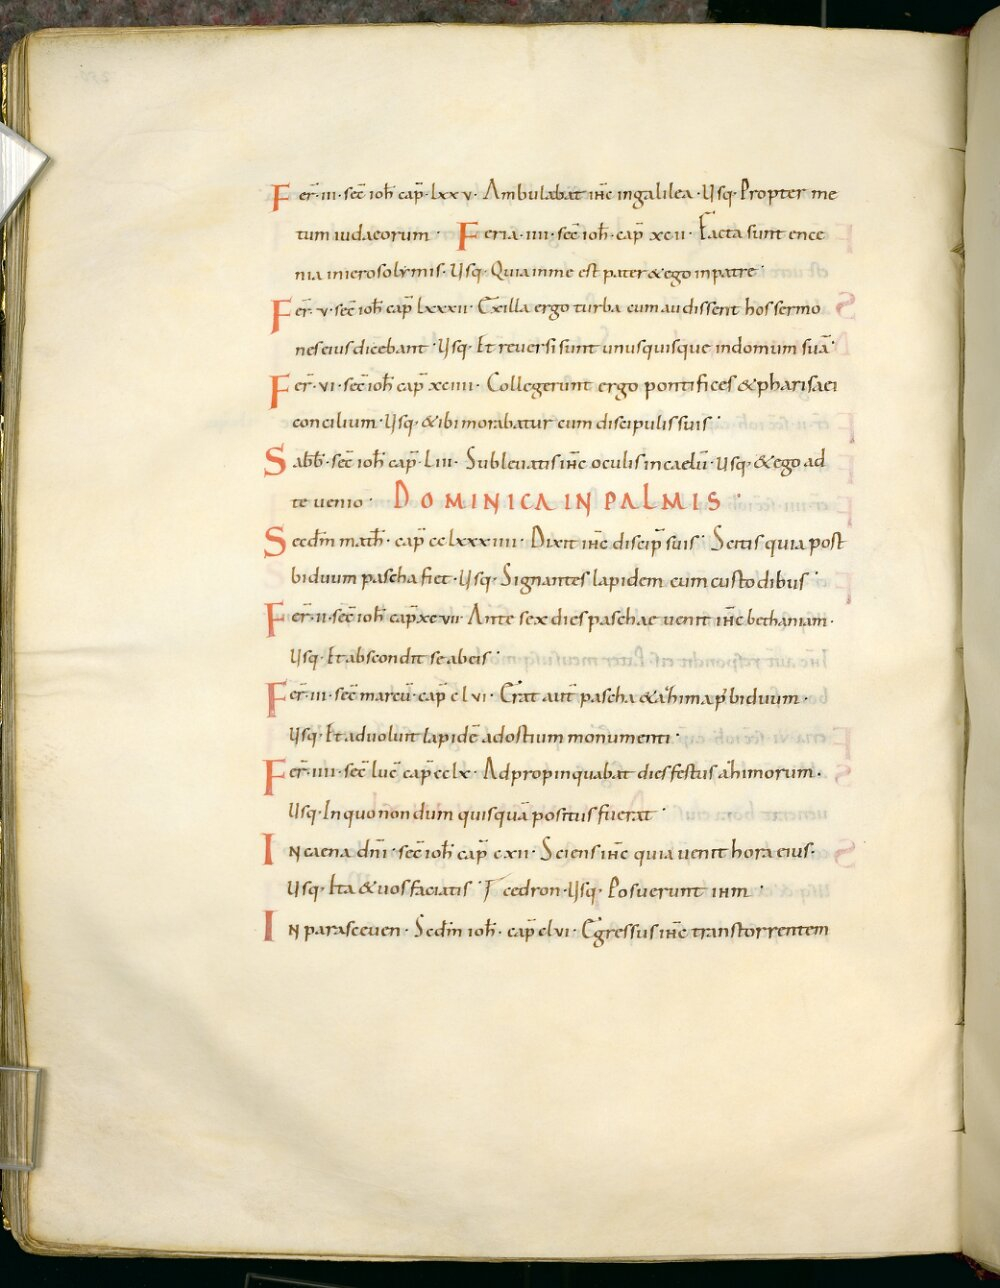 Fer̄·iii·sec̄ ioh̄ cap̄·lxxv· Ambulabat ih̄c ingalilea·Usq·Propter me
tum iudaeorum· Feria·iiii·sec̄ ioh̄·cap̄ xcii· Facta sunt ence
nia inierosolymis·Usq·Quia inme est pater &ego inpatre·
Fer̄·v·sec̄ ioh̄ cap̄ lxxxii· Exilla ergo turba cum audissent hos sermo
nes eius dicebant·Usq·Et reuersi sunt unusquisque indomum suā·
Fer̄·vi·sec̄ ioh̄ cap̄ xciiii· Collegerunt ergo pontifices &pharisaei
concilium·Usq·&ibi morabatur cum discipulis suis·
Sabb̄·sec̄ ioh̄ cap̄·Liii·Subleuatis ih̄c oculis incaelū·Usq·&ego ad
te uenio· DOMINICA IN PALMIS·
Secdm̄ math̄·cap̄ cclxxxiiii·Dixit ih̄c discip̄ suis·Scitis quia post
biduum pascha fiet·Usq·Signantes lapidem cum custodibus·
Fer̄·ii·sec̄ ioh̄ cap̄ xcvii·Ante sex dies paschae uenit ih̄c bethaniam·
Usq·Et abscondit se abeis·
Fer̄·iii·sec̄ marcū·cap̄ clvi·Erat aut̄ pascha &ahima p̄ biduum·
Usq·Et aduoluit lapidē adostium monumenti·
Fer̄·iiii·sec̄ luc̄ cap̄ cclx·Adpropinquabat dies festus ahimorum·
Usq·In quo non dum quisquā positus fuerat·
IN caena dn̄i·sec̄ ioh̄ cap̄ cxii·Sciens ih̄c quia uenit hora eius·
Usq·Ita &uos faciatis· cedron·Usq·Posuerunt ihm·
IN parasceuen·Secdm̄ ioh̄·cap̄ clvi·Egressus ih̄c trans torrentem